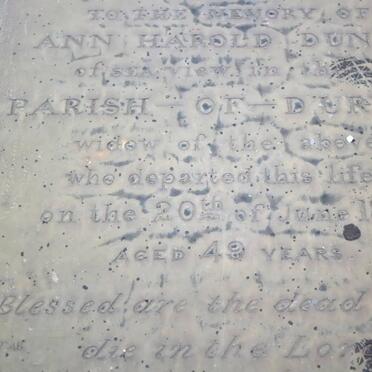 TO THE MEMORY OF
ANN HAROLD DUN
of SEA VIEW, in the
PARISH OF DUR
widow of the above
who departed this life
on the 20th of June 1
AGED 49 YEARS
Blessed are the dead
die in the Lor